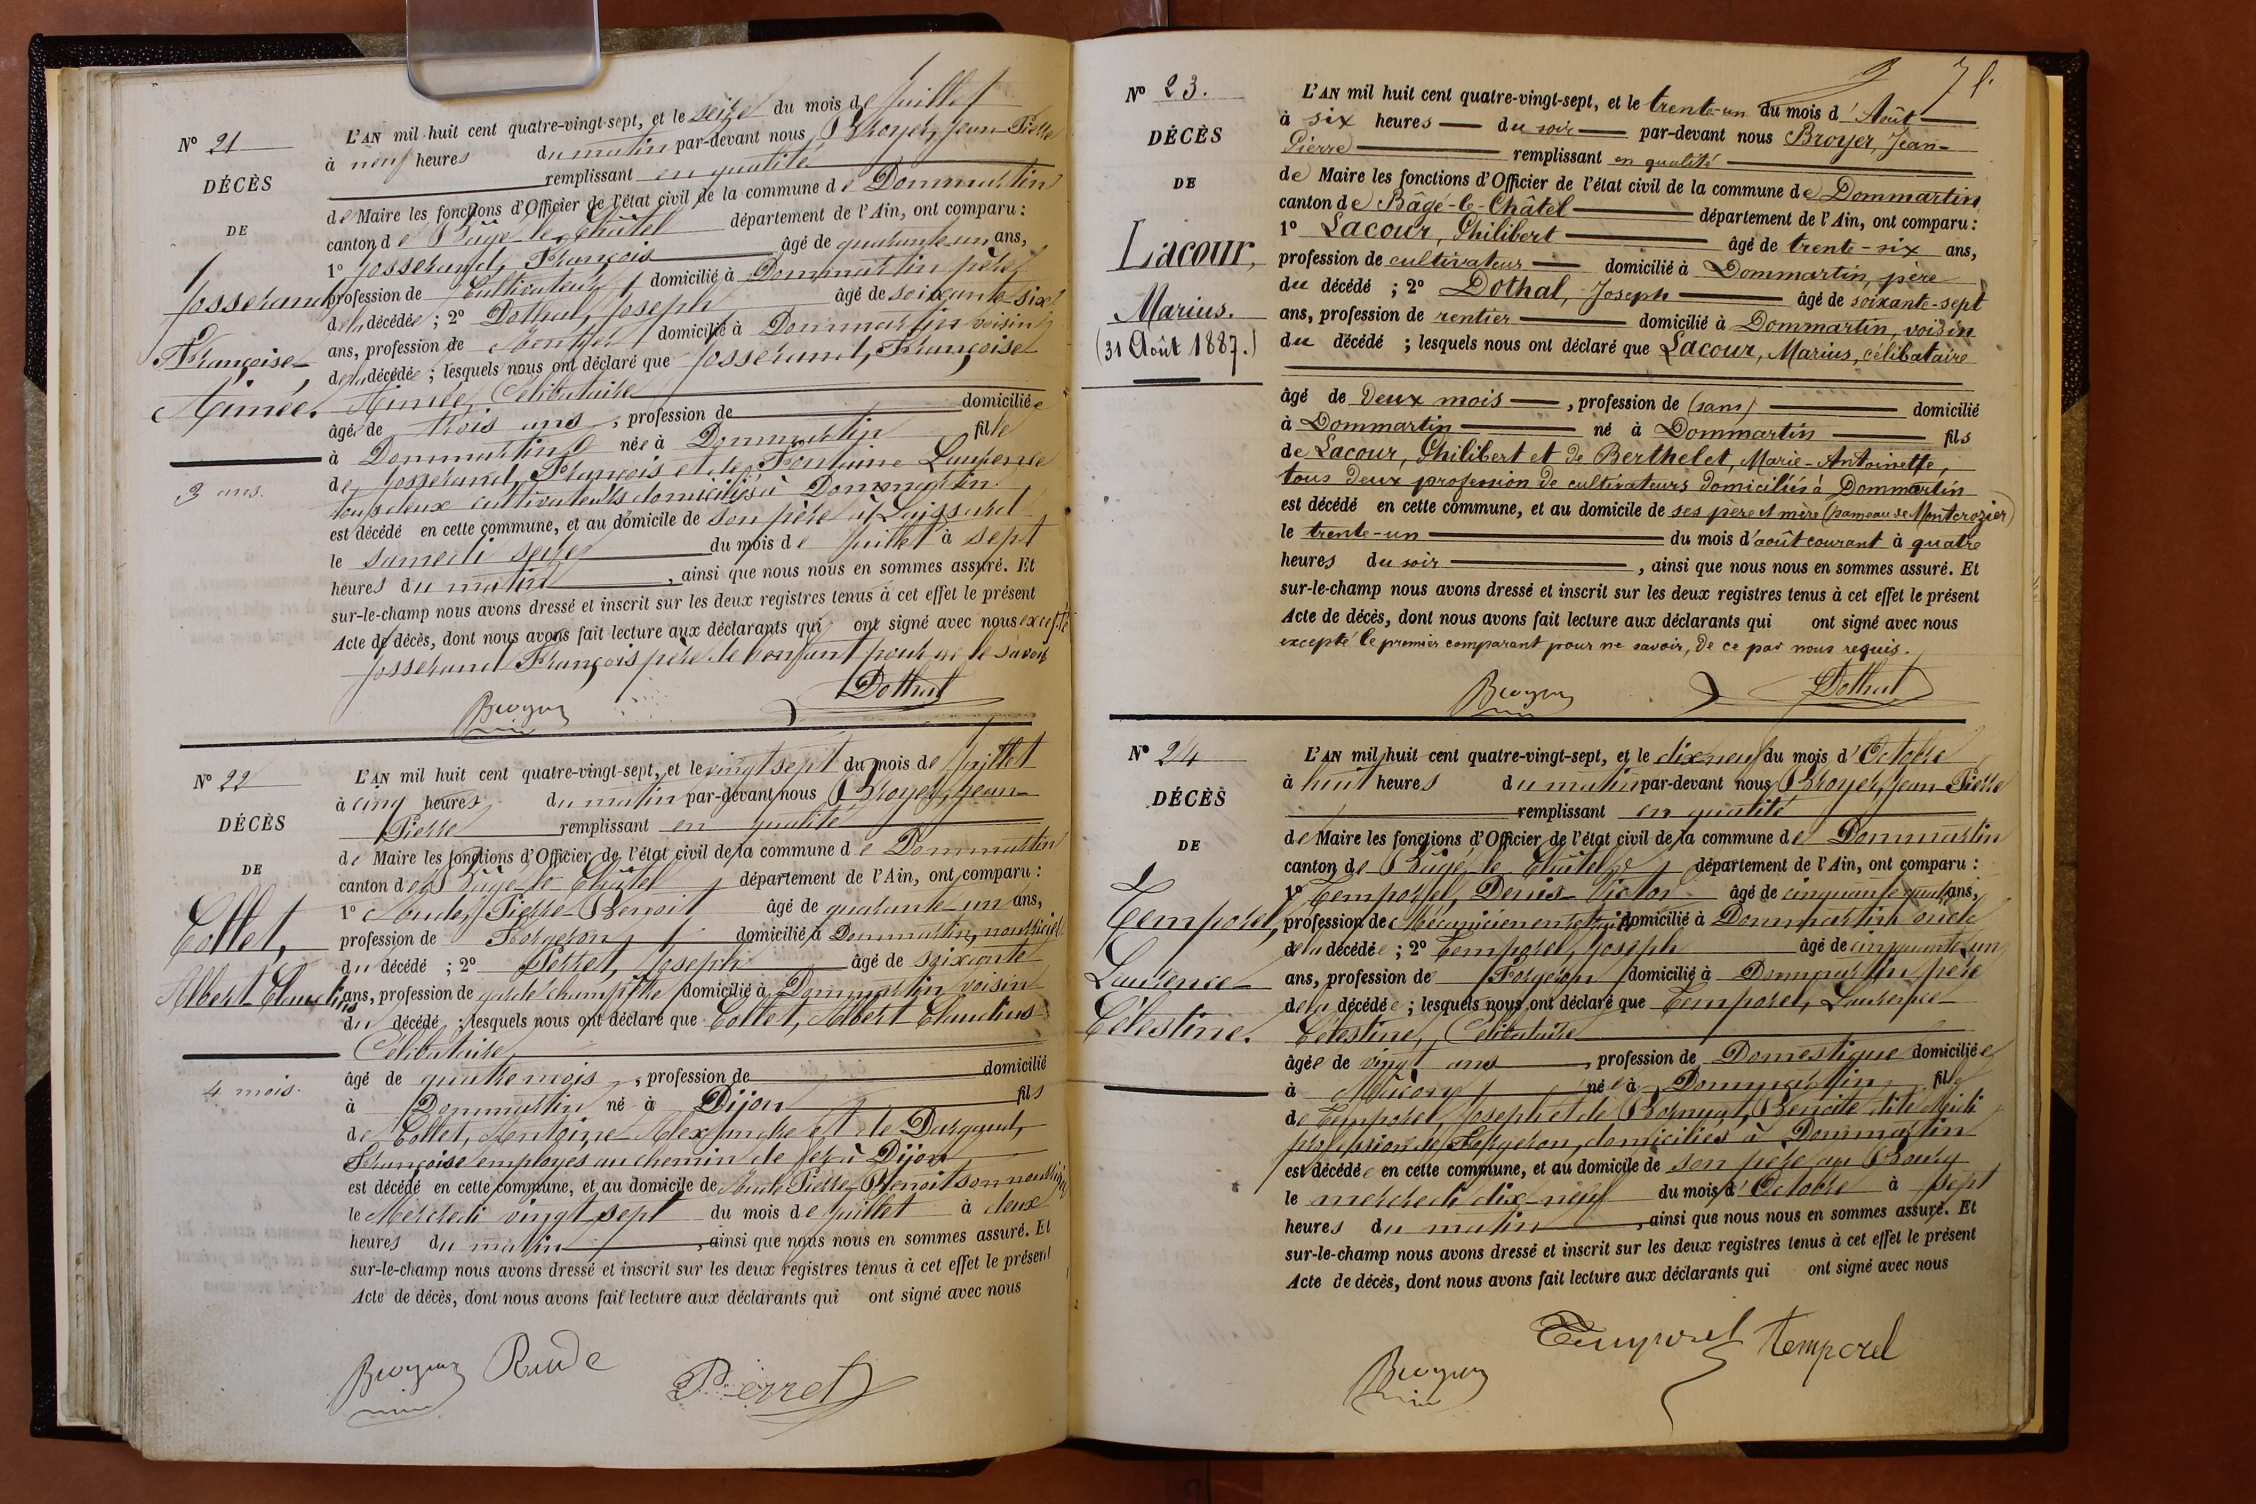 N° 21
DÉCÈS
DE
Josserand
Françoise
Aimée.
3 ans.
L'AN mil huit cent quatre-vingt-sept, et le seize du mois de Juillet
à neuf heures du matin par-devant nous Broyer, Jean-Pierre
remplissant en qualité
de Maire les fonctions d'Officier de l'état civil de la commune de Dommartin
canton de Bâgé-le-Châtel département de l'Ain, ont comparu :
1° Josserand, François âgé de quarante-un ans,
profession de Cultivateur domicilié à Dommartin père
de la décédée ; 2° Dothal, Joseph âgé de soixante-six
ans, profession de Rentier domicilié à Dommartin voisin
de la décédée ; lesquels nous ont déclaré que Josserand, Françoise
Aimée, Célibataire
âgée de trois ans, profession de domiciliée
à Dommartin née à Dommartin fille
de Josserand, François et de Fontaine Laurence
tous deux cultivateurs domiciliés à Dommartin
est décédé en cette commune, et au domicile de son père à Loissard
le samedi seize du mois de Juillet à sept
heures du matin, ainsi que nous nous en sommes assuré. Et
sur-le-champ nous avons dressé et inscrit sur les deux registres tenus à cet effet le présent
Acte de décès, dont nous avons fait lecture aux déclarants qui ont signé avec nous excepté
Josserand François père de l'enfant pour ne le savoir
Broyer
Dothal
N° 22
DÉCÈS
DE
Collet,
Albert-Claudius
4 mois.
L'AN mil huit cent quatre-vingt-sept, et le vingt sept du mois de Juillet
à cinq heures du matin par-devant nous Broyer, Jean-
Pierre remplissant en qualité
de Maire les fonctions d'Officier de l'état civil de la commune de Dommartin
canton de Bâgé-le-Châtel département de l'Ain, ont comparu :
1° Rude, Pierre-Benoit âgé de quarante-un ans,
profession de Forgeron domicilié à Dommartin, nourricier
du décédé ; 2° Perret, Joseph âgé de soixante
ans, profession de garde champêtre domicilié à Dommartin voisin
du décédé ; lesquels nous ont déclaré que Collet, Albert Claudius
Célibataire
âgé de quatre mois, profession de domicilié
à Dommartin né à Dijon fils
de Collet, Antoine Alexandre et de Dargaud,
Françoise employés au chemin de fer à Dijon
est décédé en cette commune, et au domicile de Rude Pierre Benoit son nourricier
le Mercredi vingt sept du mois de Juillet à deux
heures du matin, ainsi que nous nous en sommes assuré. Et
sur-le-champ nous avons dressé et inscrit sur les deux registres tenus à cet effet le présent
Acte de décès, dont nous avons fait lecture aux déclarants qui ont signé avec nous
Broyer Rude
Perret
N° 23.
DÉCÈS
DE
Lacour,
Marius.
(31 Août 1887.)
L'AN mil huit cent quatre-vingt-sept, et le trente-un du mois d'Août
à six heures du soir par-devant nous Broyer, Jean-
Pierre remplissant en qualité
de Maire les fonctions d'Officier de l'état civil de la commune de Dommartin
canton de Bâgé-le-Châtel département de l'Ain, ont comparu :
1° Lacour, Philibert âgé de trente-six ans,
profession de cultivateur domicilié à Dommartin, père
du décédé ; 2° Dothal, Joseph âgé de soixante-sept
ans, profession de rentier domicilié à Dommartin, voisin
du décédé ; lesquels nous ont déclaré que Lacour, Marius, célibataire
âgé de Deux mois, profession de (sans) domicilié
à Dommartin né à Dommartin fils
de Lacour, Philibert et de Berthelet, Marie-Antoinette,
tous deux profession de cultivateurs domiciliés à Dommartin
est décédé en cette commune, et au domicile de ses père et mère (hameau de Montcrozier)
le trente-un du mois d'août courant à quatre
heures du soir, ainsi que nous nous en sommes assuré. Et
sur-le-champ nous avons dressé et inscrit sur les deux registres tenus à cet effet le présent
Acte de décès, dont nous avons fait lecture aux déclarants qui ont signé avec nous
excepté le premier comparant pour ne savoir, de ce par nous requis.
Broyer
Dothal
N° 24
DÉCÈS
DE
Temporel,
Laurence
Célestine.
L'AN mil huit cent quatre-vingt-sept, et le dix neuf du mois d'Octobre
à huit heures du matin par-devant nous Broyer, Jean-Pierre
remplissant en qualité
de Maire les fonctions d'Officier de l'état civil de la commune de Dommartin
canton de Bâgé-le-Châtel département de l'Ain, ont comparu :
1° Temporel, Denis-Victor âgé de cinquante ans,
profession de Mécanicien en retraite domicilié à Dommartin oncle
de la décédée ; 2° Temporel, Joseph âgé de cinquante-un
ans, profession de Forgeron domicilié à Dommartin père
de la décédée ; lesquels nous ont déclaré que Temporel, Laurence
Célestine, Célibataire
âgée de vingt ans, profession de Domestique domiciliée
à Mâcon née à Dommartin fille
de Temporel, Joseph et de Benoite dite
profession de Forgeron, domiciliés à Dommartin
est décédée en cette commune, et au domicile de son père au Bourg
le mercredi dix-neuf du mois d'Octobre à sept
heures du matin, ainsi que nous nous en sommes assuré. Et
sur-le-champ nous avons dressé et inscrit sur les deux registres tenus à cet effet le présent
Acte de décès, dont nous avons fait lecture aux déclarants qui ont signé avec nous
Temporel temporel
Broyer